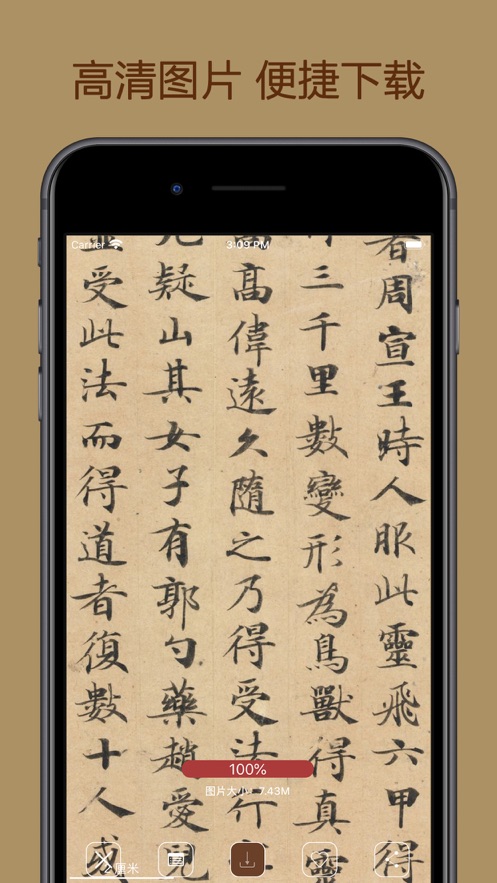 高清图片 便捷下载
Carrier
3:09 PM
者周宣王時人服此靈飛六甲得
行三千里數變形為鳥獸得真靈
嵩高偉遠久隨之乃得受法行
九疑山其女子有郭勺藥趙愛兒
並受此法而得道者復數十人或
100%
图片大小：7.43M
2 厘米